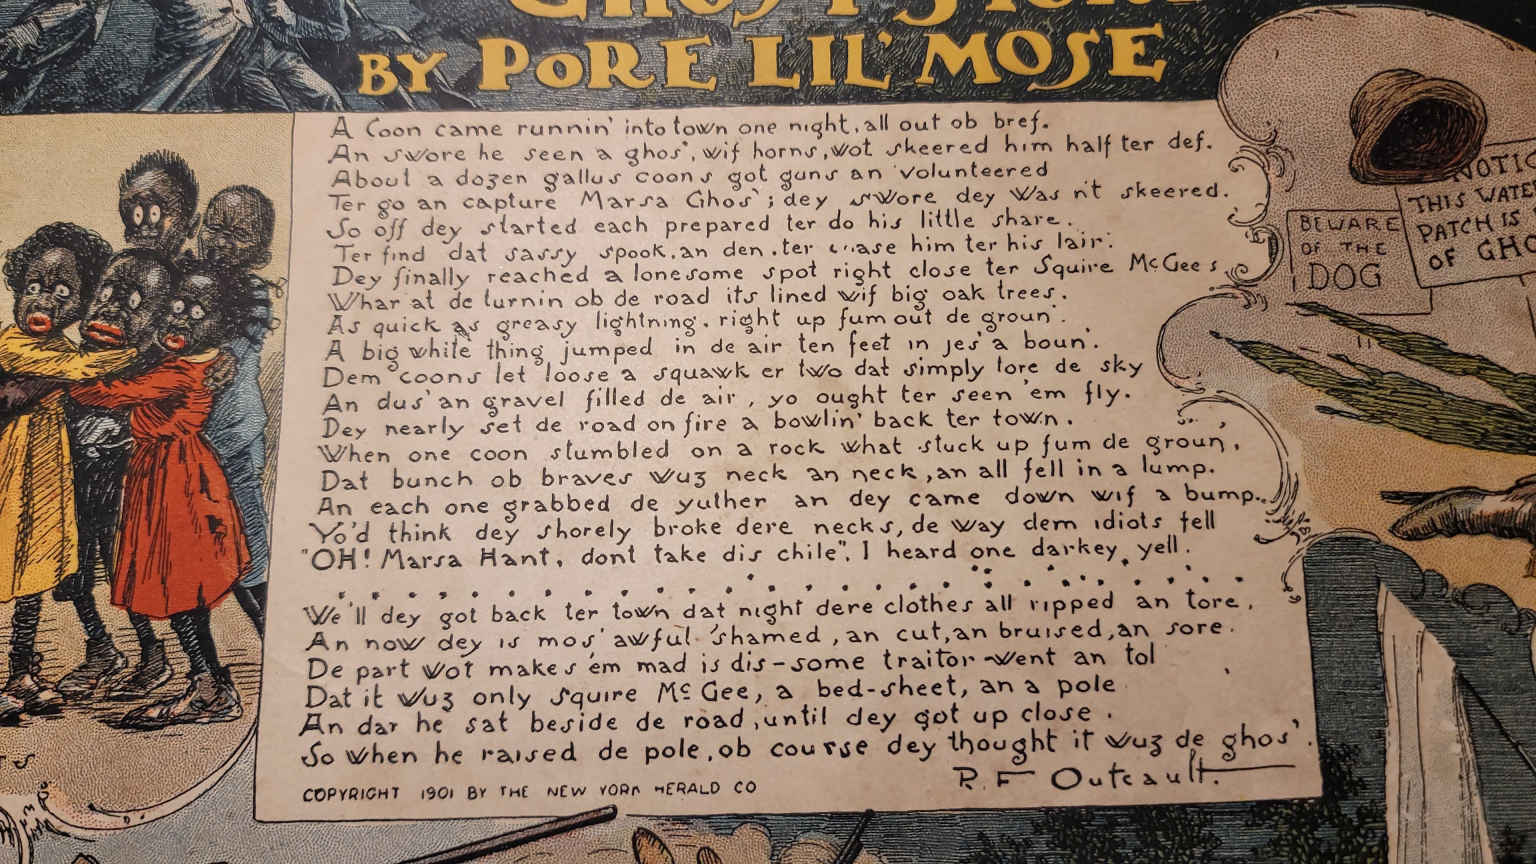 BY PORE LIL' MOSE
A Coon came runnin' into town one night, all out ob bref.
An swore he seen a ghos', wif horns, wot skeered him half ter def.
About a dozen gallus coons got guns an volunteered
Ter go an capture Marsa Ghos'; dey swore dey was n't skeered.
So off dey started each prepared ter do his little share.
Ter find dat sassy spook, an den, ter chase him ter his lair.
Dey finally reached a lonesome spot right close ter Squire McGees
Whar at de turnin ob de road its lined wif big oak trees.
As quick as greasy lightning, right up fum out de groun'.
A big white thing jumped in de air ten feet in jes' a boun'.
Dem coons let loose a squawk er two dat simply tore de sky
An dus' an gravel filled de air, yo ought ter seen 'em fly.
Dey nearly set de road on fire a bowlin' back ter town.
When one coon stumbled on a rock what stuck up fum de groun',
Dat bunch ob braves wuz neck an neck, an all fell in a lump.
An each one grabbed de yuther an dey came down wif a bump.
Yo'd think dey shorely broke dere necks, de way dem idiots fell
"OH! Marsa Hant, dont take dis chile", I heard one darkey yell.
We'll dey got back ter town dat night dere clothes all ripped an tore,
An now dey is mos' awful 'shamed, an cut, an bruised, an sore.
De part wot makes 'em mad is dis-some traitor went an tol'
Dat it wuz only Squire McGee, a bed-sheet, an a pole
An dar he sat beside de road, until dey got up close.
So when he raised de pole, ob course dey thought it wuz de ghos'.
R.F Outcault.
COPYRIGHT 1901 BY THE NEW YORK HERALD CO
BEWARE
OF THE
DOG
THIS
PATCH IS
OF